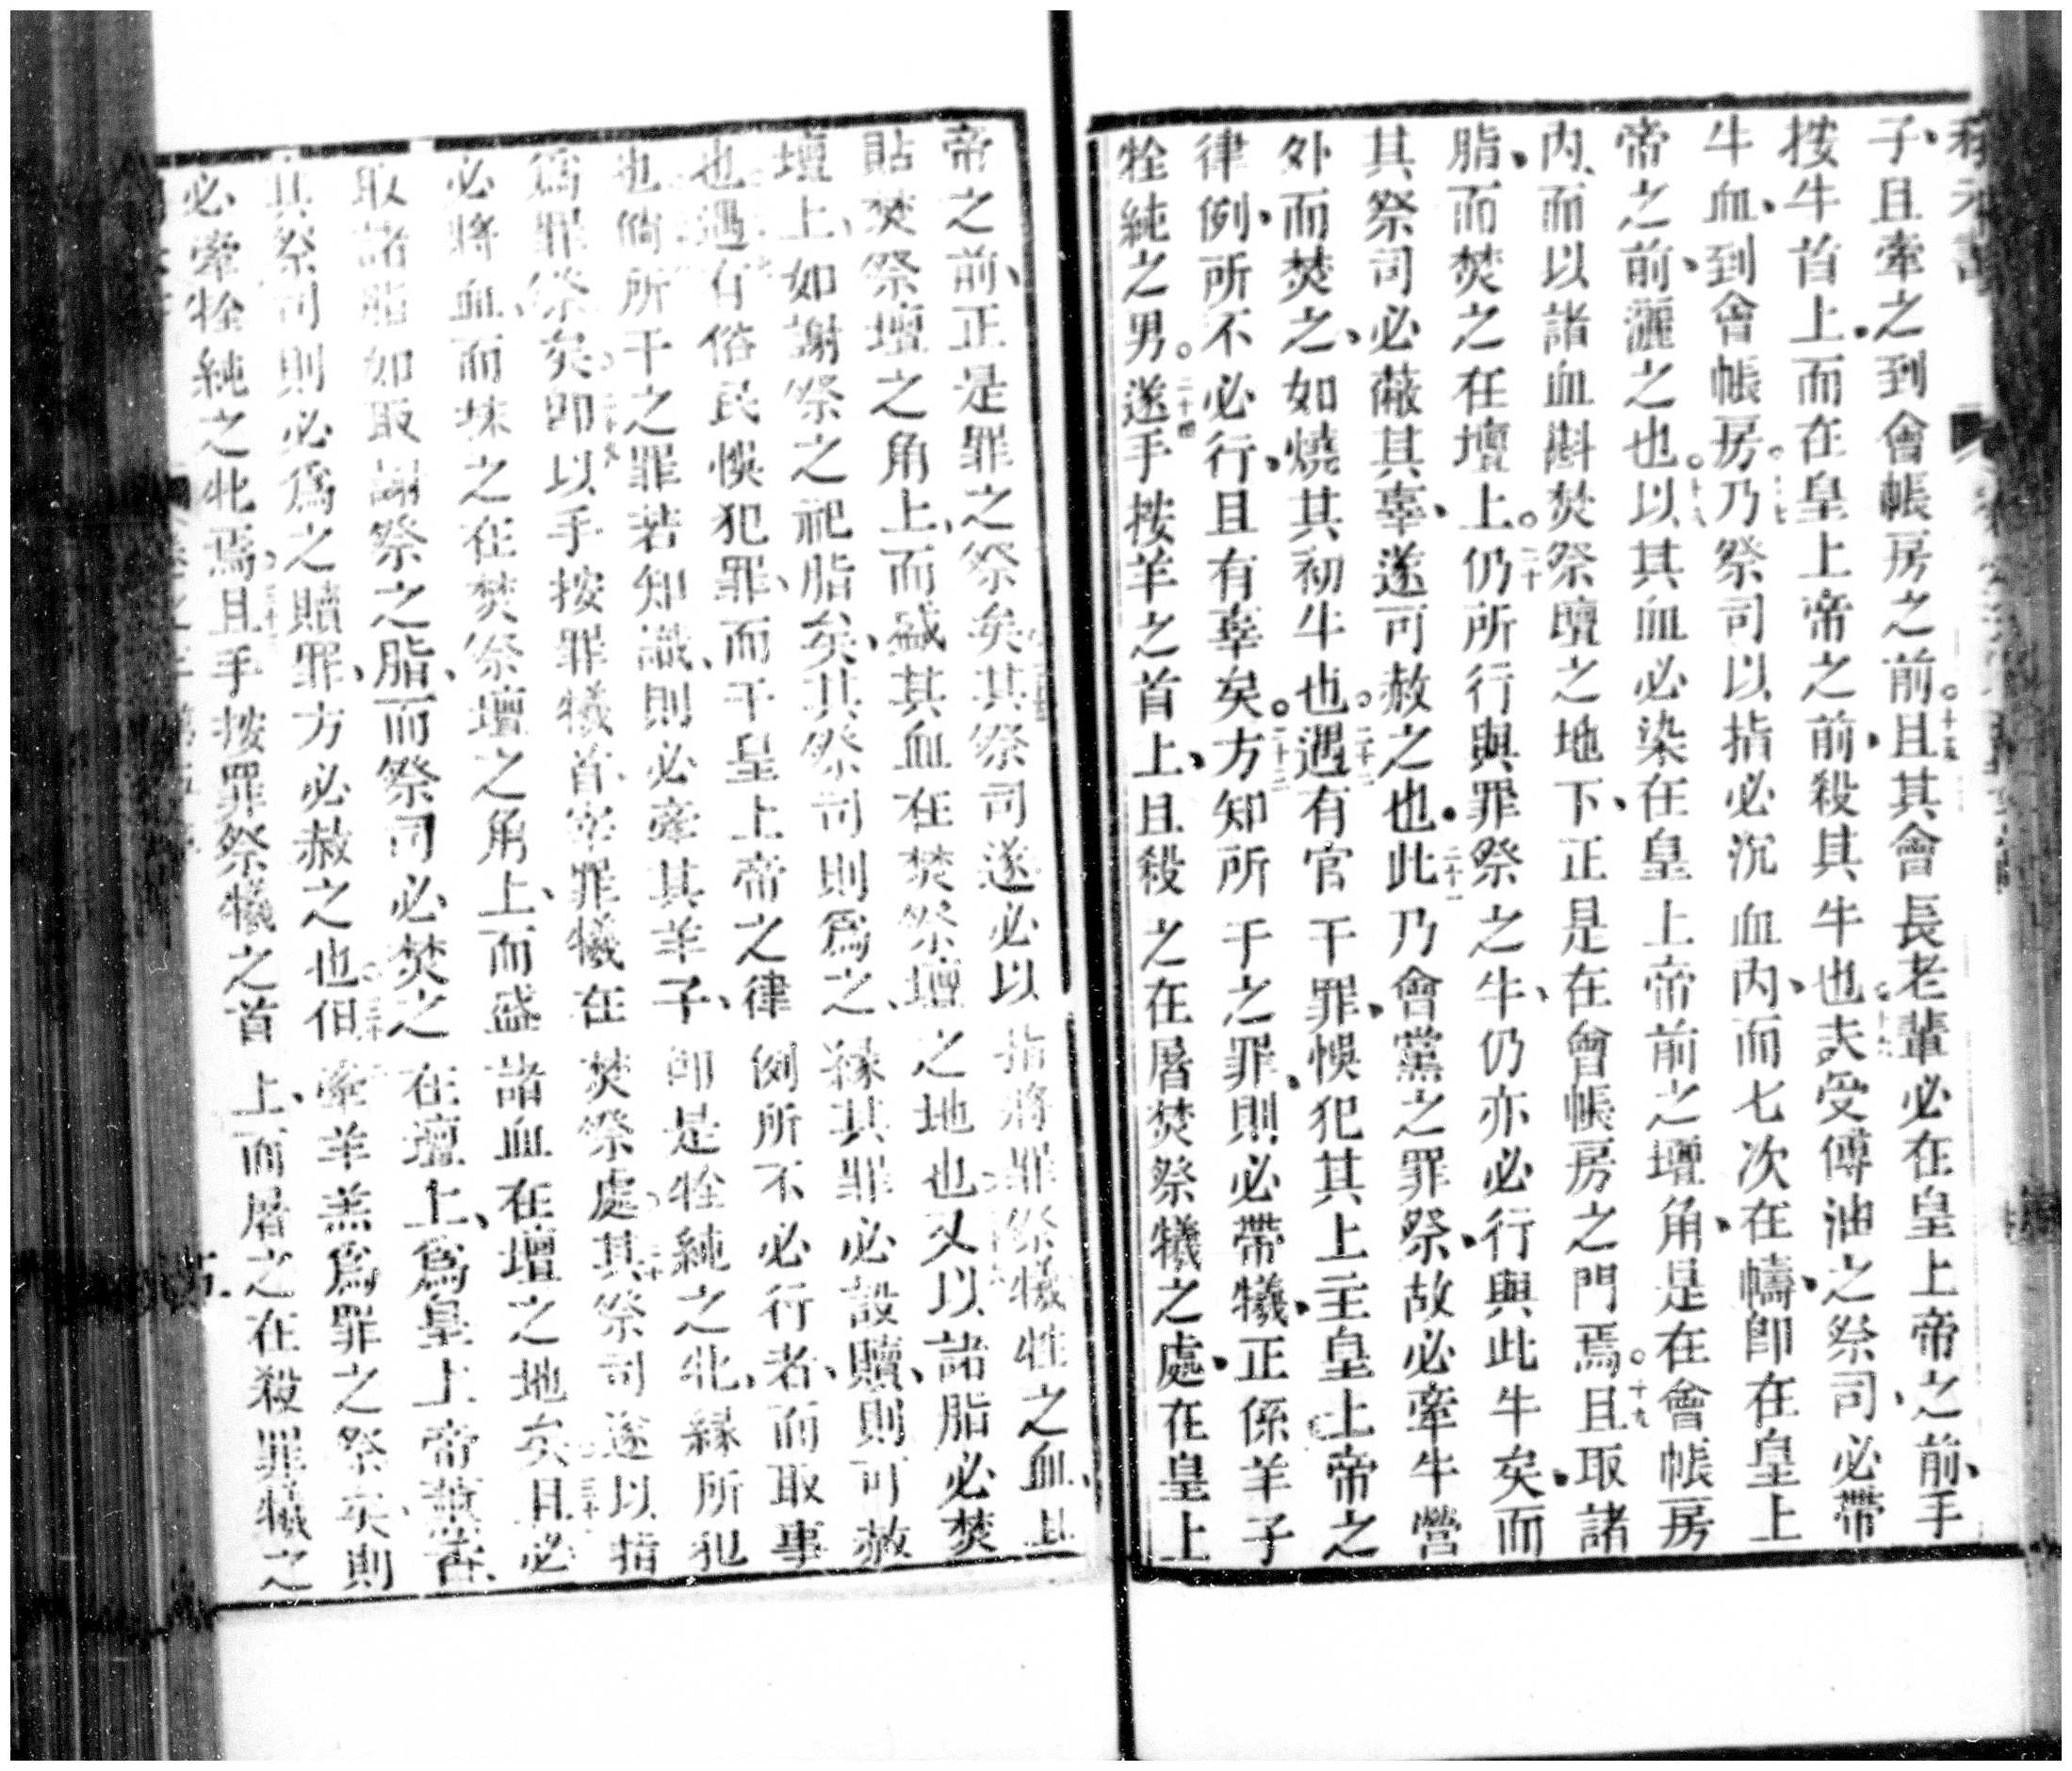 子、且牽之到會帳房之前。十五且其會長老輩必在皇上帝之前、手
按牛首上、而在皇上帝之前、殺其牛也。十六夫受傅油之祭司、必帶
牛血、到會帳房。十七乃祭司以指必沉血內、而七次在幬、卽在皇上
帝之前、灑之也。十八以其血必染在皇上帝前之壇角、是在會帳房
內、而以諸血斟焚祭壇之地下、正是在會帳房之門焉。十九且取諸
脂、而焚之在壇上。二十仍所行與罪祭之牛、仍亦必行與此牛矣、而
其祭司必蔽其辜、遂可赦之也、二十一此乃會黨之罪祭、故必牽牛營
外而焚之、如燒其初牛也。二十二遇有官干罪、悞犯其上主皇上帝之
律例、所不必行、且有辜矣。二十三方知所干之罪、則必帶犧、正係羊子
牷純之男。二十四遂手按羊之首上、且殺之在屠焚祭犧之處、在皇上
帝之前、正是罪之祭矣其祭司遂必以指將罪祭犧牲之血、且
貼焚祭壇之角上、而盛其血在焚祭壇之地也又以諸脂必焚
壇上、如謝祭之祀脂矣、其祭司則爲之、緣其罪必設贖、則可赦
也遇有俗民悞犯罪、而干皇上帝之律例所不必行者、而取事
也倘所干之罪若知識、則必牽其羊子、卽是牷純之牝、緣所犯
爲罪祭矣。二十九卽以手按罪犧首、宰罪犧在焚祭處、三十其祭司遂以指
必將血、而抹之在焚祭壇之角上、而盛諸血在壇之地矣三十一且必
取諸脂如取謝祭之脂、而祭司必焚之在壇上、爲皇上帝薰香、
其祭司則必爲之贖罪、方必赦之也。三十二但牽羊羔爲罪之祭矣、則
必牽牷純之牝焉。三十三且手按罪祭犧之首上、而屠之在殺罪犧之